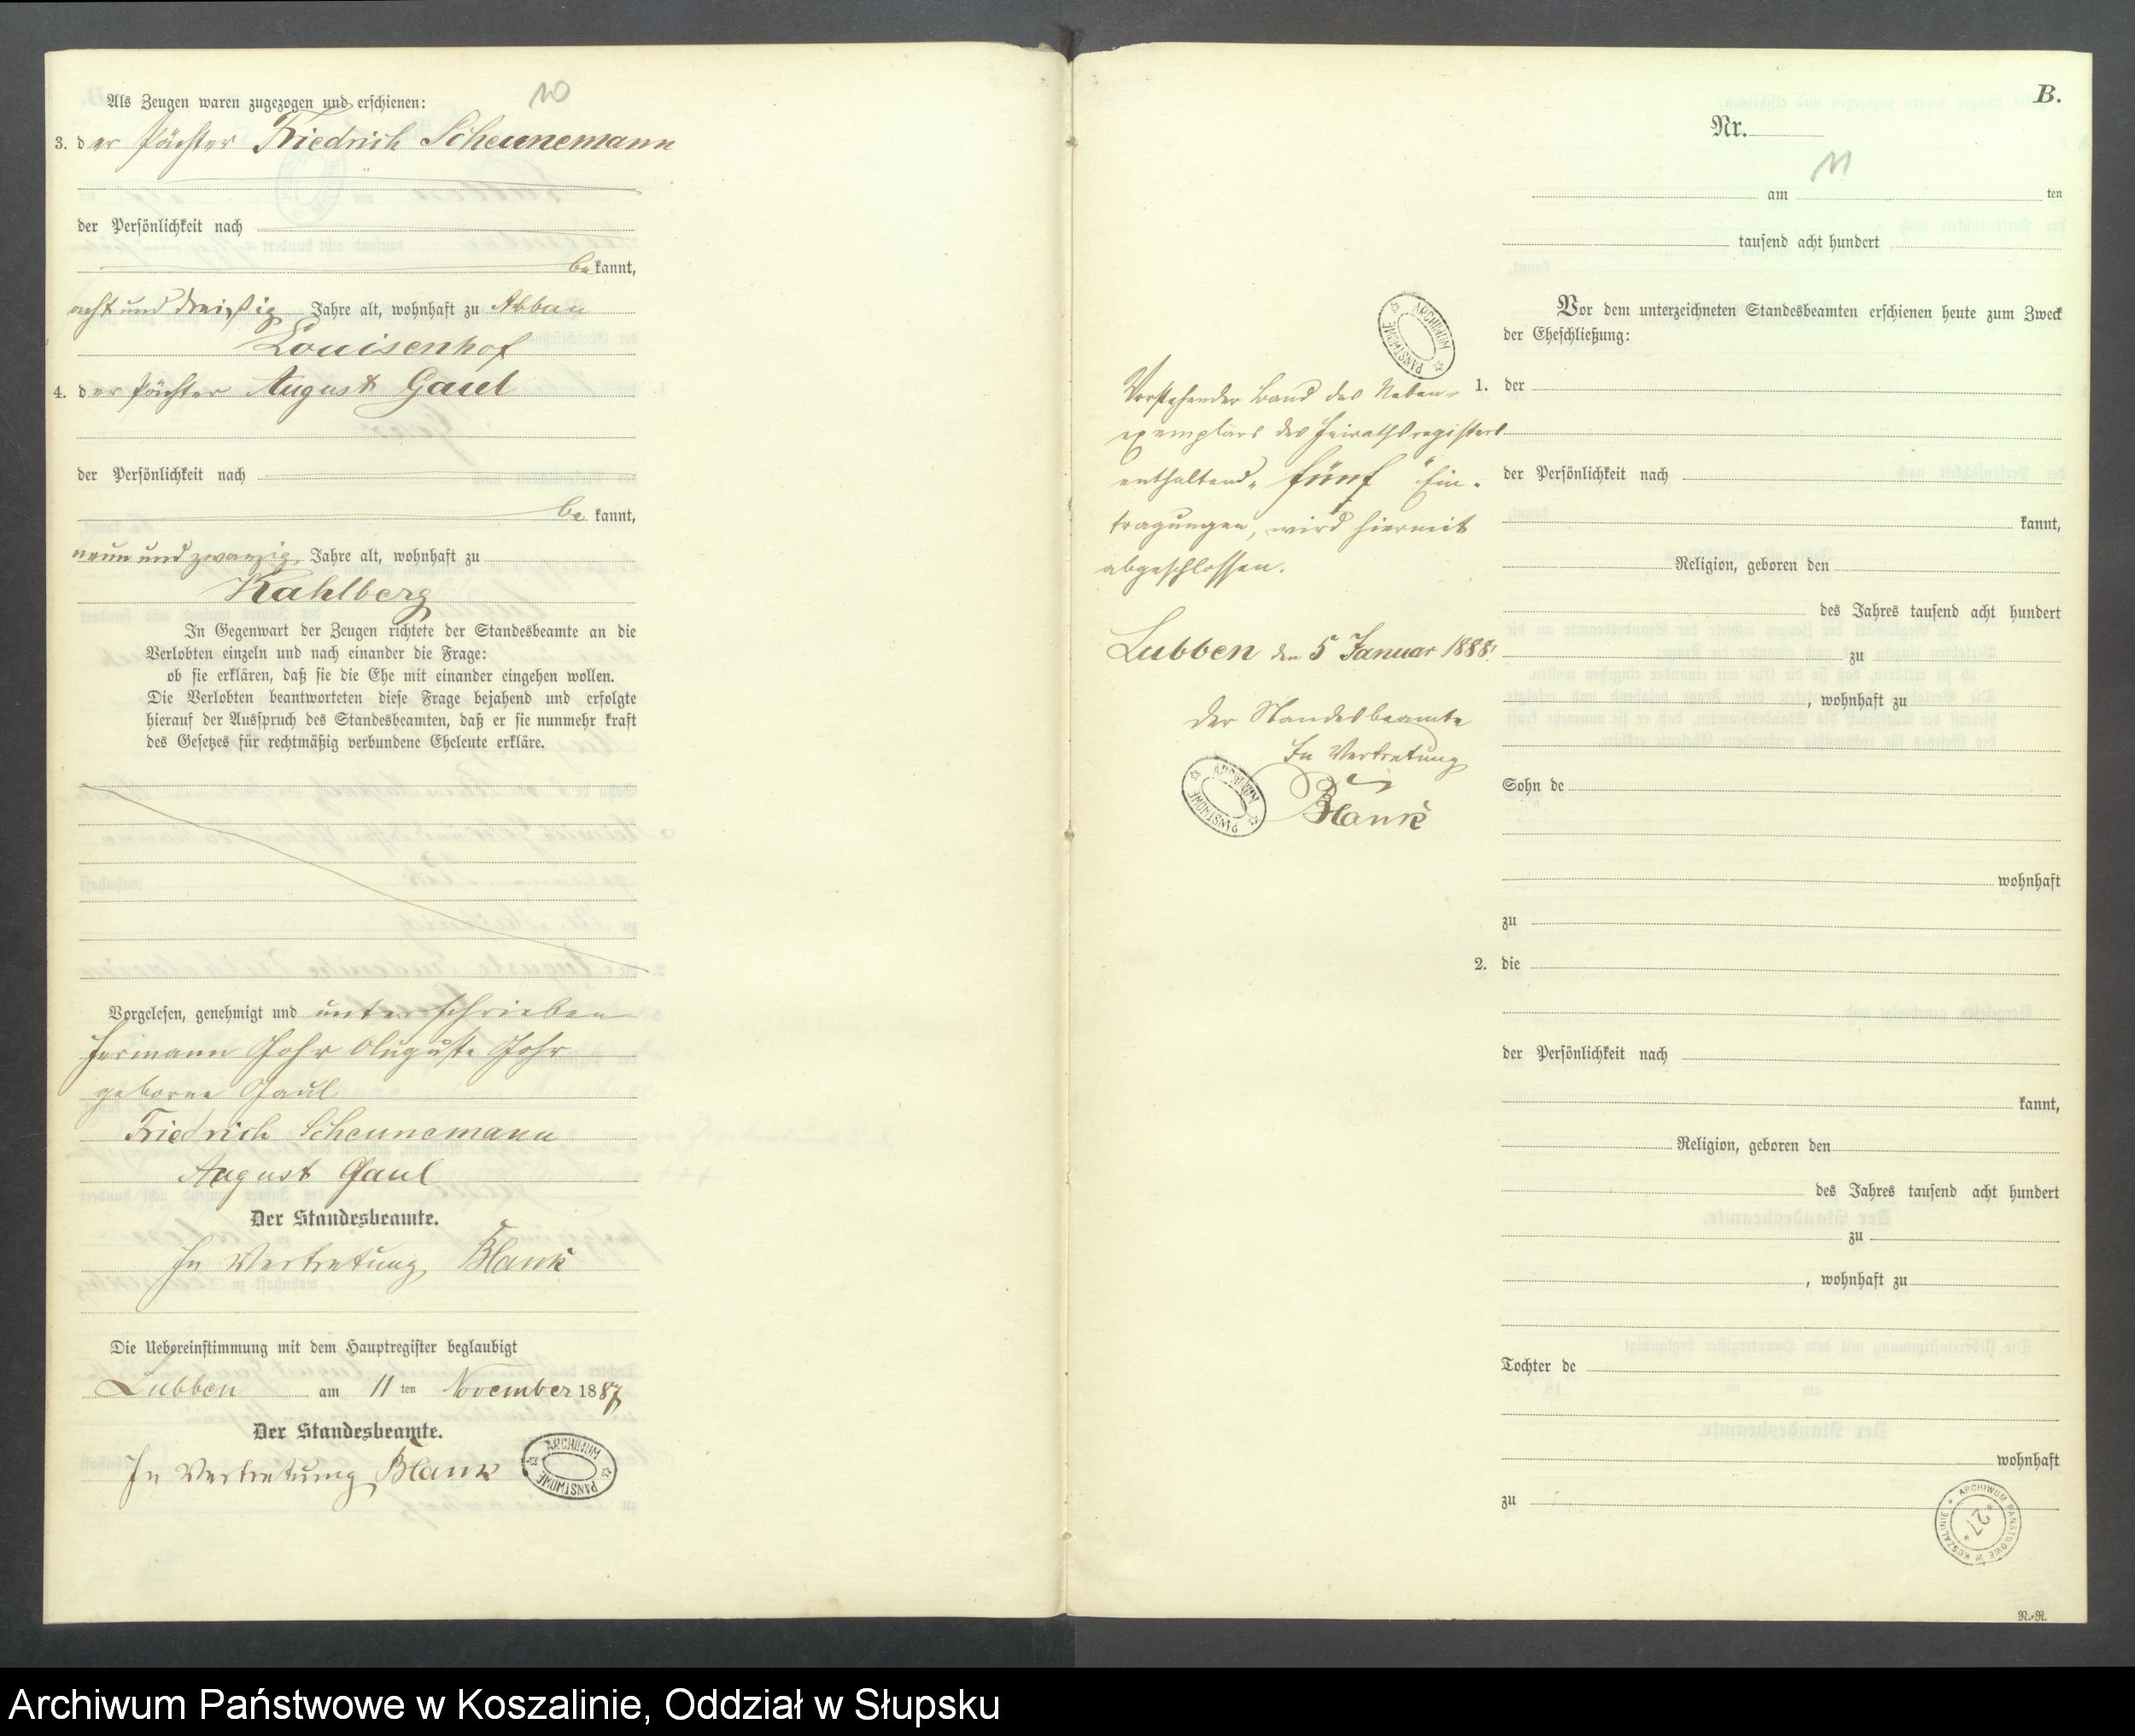 10
Als Zeugen waren zugezogen und erschienen:
3. der Pächter Friedrich Scheunemann
der Persönlichkeit nach
be kannt,
acht und dreißig Jahre alt, wohnhaft zu Abbau
Louisenhof
4. der Pächter August Gaul
der Persönlichkeit nach
be kannt,
neun und zwanzig Jahre alt, wohnhaft zu
Kahlberg
In Gegenwart der Zeugen richtete der Standesbeamte an die
Verlobten einzeln und nach einander die Frage:
ob sie erklären, daß sie die Ehe mit einander eingehen wollen.
Die Verlobten beantworteten diese Frage bejahend und erfolgte
hierauf der Ausspruch des Standesbeamten, daß er sie nunmehr kraft
des Gesetzes für rechtmäßig verbundene Eheleute erkläre.
Vorgelesen, genehmigt und unterschrieben
Hermann Gohr Auguste Gohr
geborne Gaul
Friedrich Scheunemann
August Gaul
Der Standesbeamte.
In Vertretung Blank
Die Uebereinstimmung mit dem Hauptregister beglaubigt
Lubben am 11 ten November 1887
Der Standesbeamte.
In Vertretung Blank
ARCHIWUM PAŃSTWOWE
B.
Nr.
11
am ten
tausend acht hundert
Vor dem unterzeichneten Standesbeamten erschienen heute zum Zweck
der Eheschließung:
1. der
der Persönlichkeit nach
kannt,
Religion, geboren den
des Jahres tausend acht hundert
zu
, wohnhaft zu
Sohn de
wohnhaft
zu
2. die
der Persönlichkeit nach
kannt,
Religion, geboren den
des Jahres tausend acht hundert
zu
, wohnhaft zu
Tochter de
wohnhaft
zu
ARCHIWUM PAŃSTWOWE
Vorstehender Band des Neben-
exemplars des Heirathsregisters
enthaltend „fünf“ Ein-
tragungen, wird hiermit
abgeschlossen.
Lubben den 5 Januar 1888.
Der Standesbeamte
In Vertretung
Blank
ARCHIWUM PAŃSTWOWE
ARCHIWUM PAŃSTWOWE W KOSZALINIE
*27*
R.-R.
Archiwum Państwowe w Koszalinie, Oddział w Słupsku